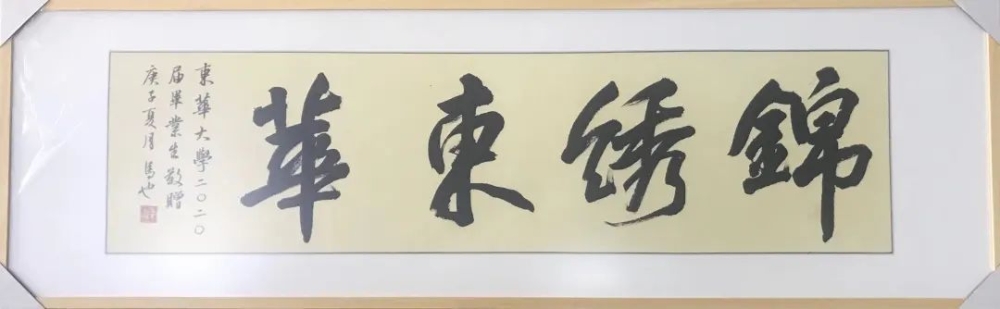 錦綉東華
東華大學二〇二〇
届畢業生敬贈
庚子夏月 馬也